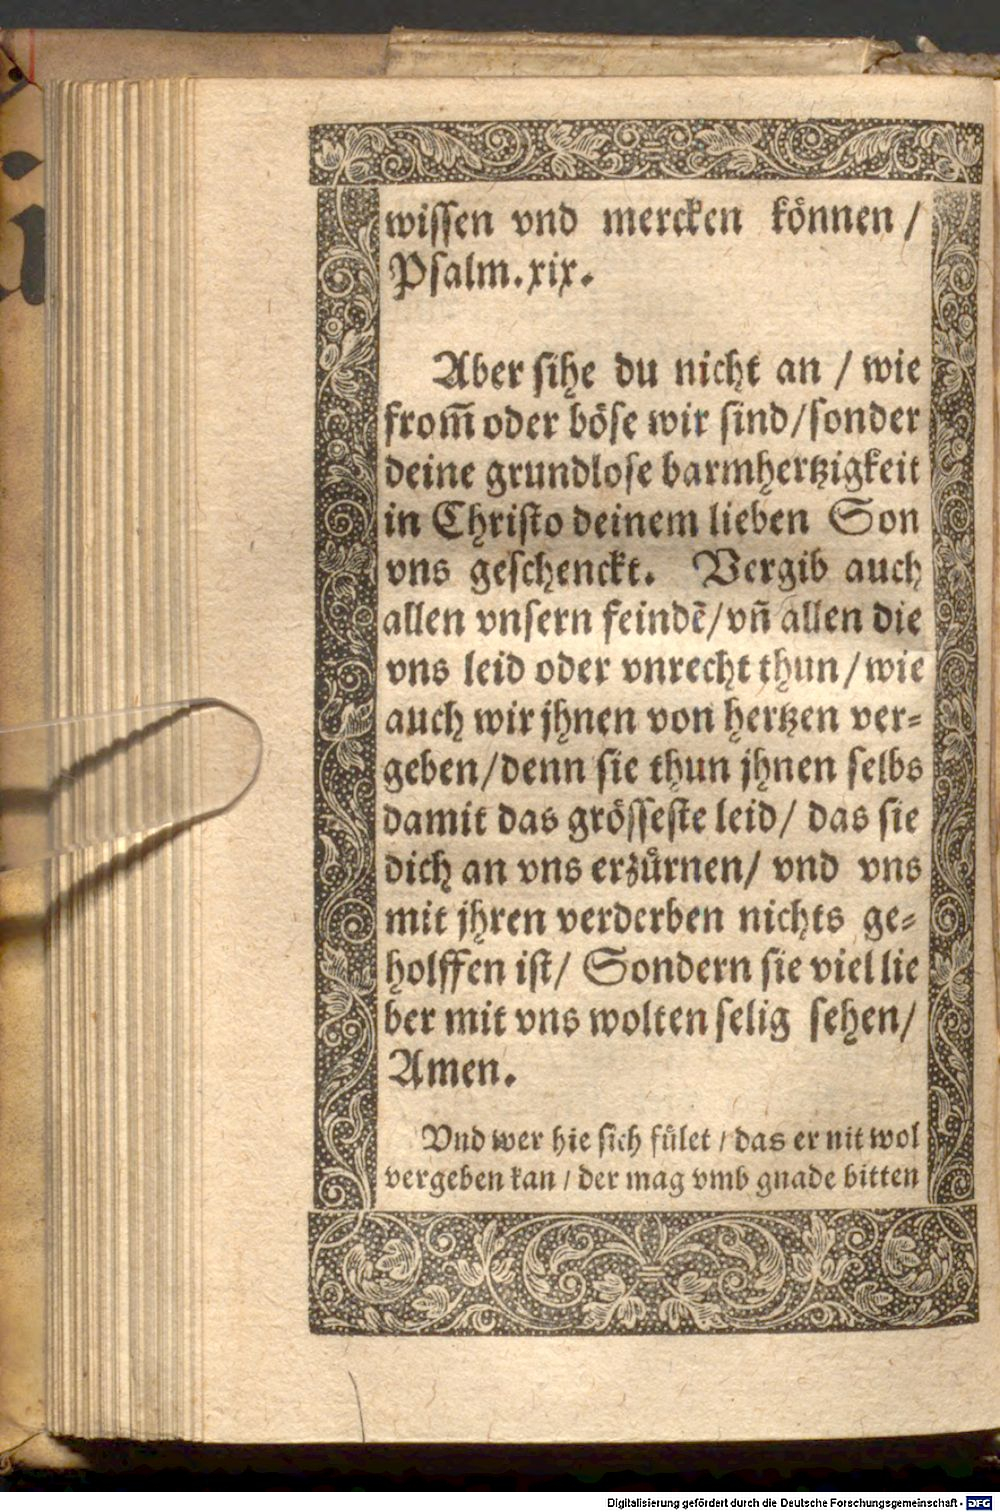 wissen vnd mercken können /
Psalm. xix.
Aber sihe du nicht an / wie
from̃ oder böse wir sind/sonder
deine grundlose barmhertzigkeit
in Christo deinem lieben Son
vns geschenckt. Vergib auch
allen vnsern feindẽ/vñ allen die
vns leid oder vnrecht thun/wie
auch wir jhnen von hertzen ver=
geben/denn sie thun jhnen selbs
damit das grösseste leid/ das sie
dich an vns erzürnen/ vnd vns
mit jhren verderben nichts ge=
holffen ist/ Sondern sie viel lie
ber mit vns wolten selig sehen/
Amen.
Vnd wer hie sich fület / das er nit wol
vergeben kan / der mag vmb gnade bitten
Digitalisierung gefördert durch die Deutsche Forschungsgemeinschaft - DFG